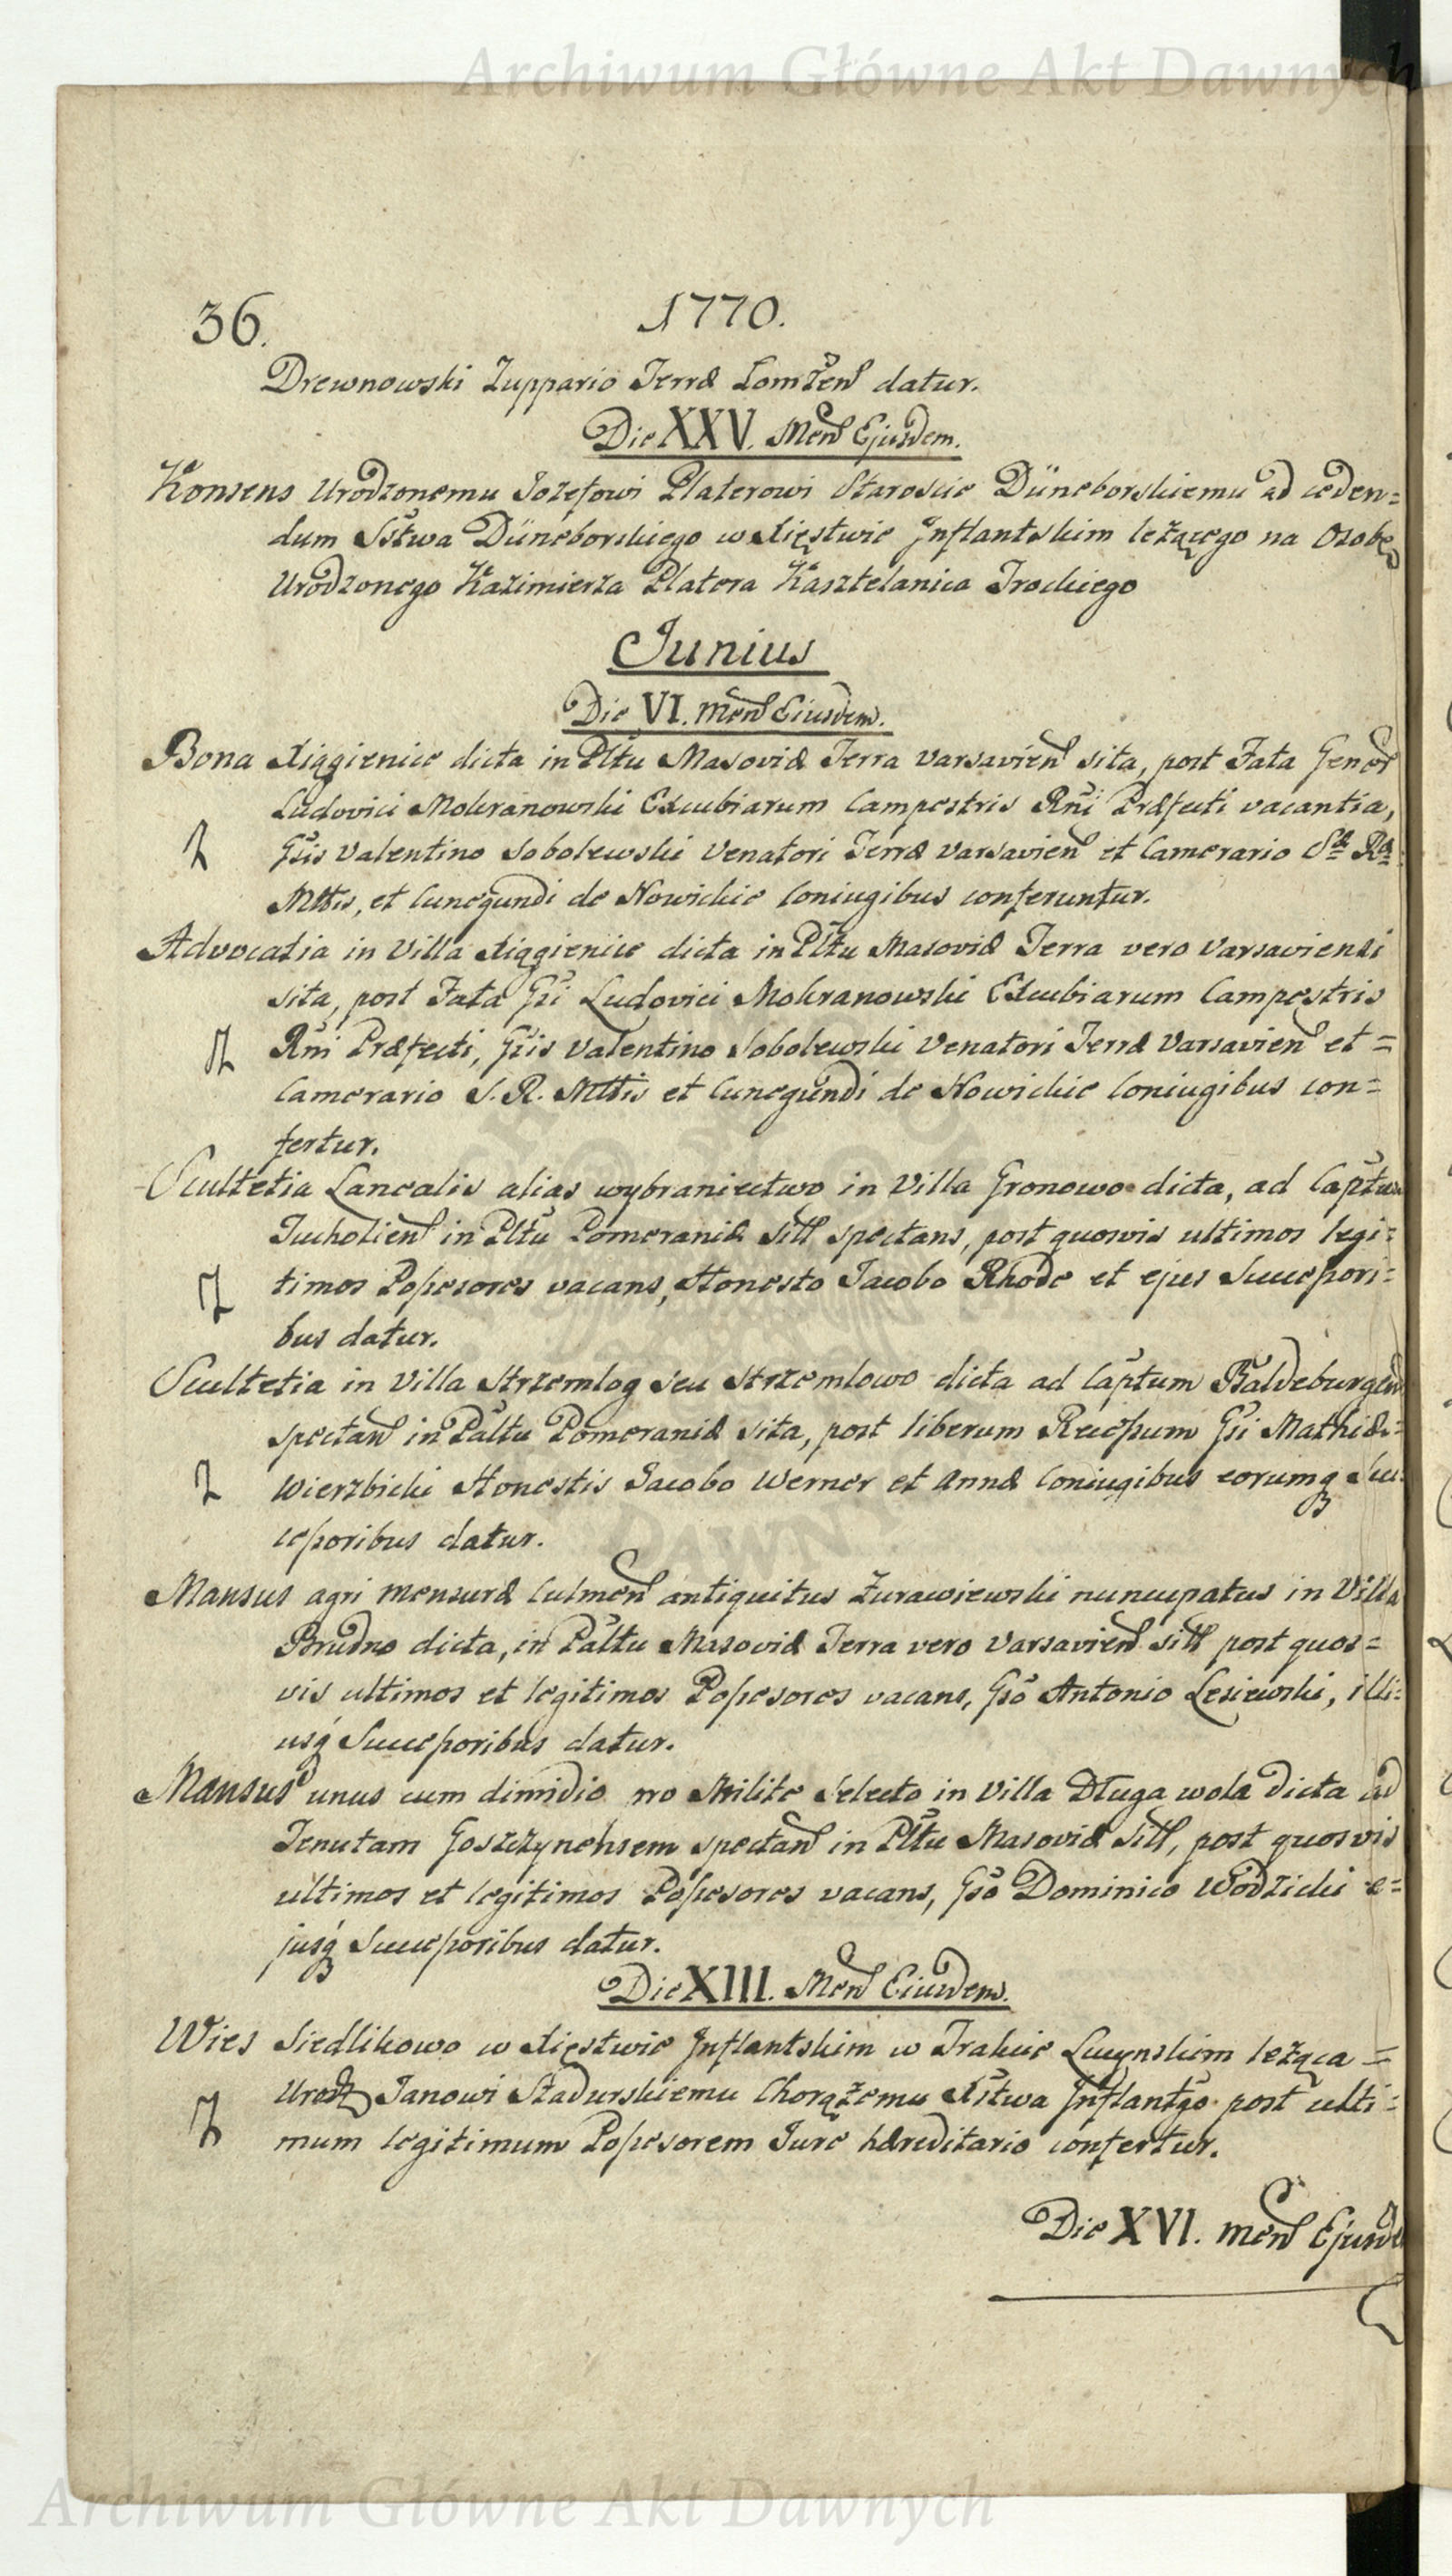 Archiwum Główne Akt Dawnych
36.
1770.
Drewnowski Zuppario Terræ Lomżen datur.
Die XXV. Men Ejusdem.
Konsens Urodzonemu Jozefowi Platerowi Staroscie Düneborskiemu ad ceden=
dum Sstwa Düneborskiego w Xięstwie Jnflantskim leżącego na Osobę
Urodzonego Kazimierza Platera Kasztelanica Trockiego
Junius
Die VI. Men Eiusdem.
Bona Xiggienice dicta in Pltu Masoviæ Terra Varsavien sita, post Fata Genosi
Ludovici Mokranowski Excubiarum Campestris Rni Præfecti vacantia,
Gsis Valentino Sobolewski Venatori Terræ Varsavien et Camerario Sæ Ræ
Mttis, et Cunegundi de Nowickie Coniugibus conferuntur.
Advocatia in Villa Xiggienice dicta in Pltu Masoviæ Terra vero Varsaviensi
sita, post Fata Gsi Ludovici Mokranowski Excubiarum Campestris
Rni Præfecti, Gsis Valentino Sobolewski Venatori Terræ Varsavien et =
Camerario S. R. Mttis et Cunegundi de Nowickie Coniugibus con=
fertur.
Scultetia Lanealis alias wybraniectwo in Villa Gronowo dicta, ad Captum
Tucholien in Pltu Pomeraniæ sitt spectans, post quosvis ultimos legi=
timos Possesores vacans, Honesto Jacobo Rhode et ejus Successori=
bus datur.
Scultetia in Villa Strzemlog seu Strzemlowo dicta ad Captum Baldeburgen
spectan in Paltu Pomeraniæ sita, post liberum Recessum Gsi Mathiæ=
Wierzbicki Honestis Jacobo Werner et Annæ Coniugibus eorumq Suc=
cessoribus datur.
Mansus agri mensuræ Culmen antiquitus Zurawiewski nuncupatus in Villa
Brudno dicta, in Paltu Masoviæ Terra vero Varsavien sitt post quos=
vis ultimos et legitimos Possesores vacans, Gso Antonio Lesiewski, illi=
usq Successoribus datur.
Mansus unus cum dimidio pro Milite Selecto in Villa Długa wola dicta ad
Tenutam Goszczynensem spectan in Pltu Masoviæ Sitt, post quosvis
ultimos et legitimos Possesores vacans, Gso Dominico Wodzicki e=
jusq Successoribus datur.
Die XIII. Men Eiusdem.
Wies Siedlikowo w Xięstwie Jnflantskim w Trakcie Lucynskim leżąca =
Urodz Janowi Stadurskiemu Chorążemu Xstwa Jnflantgo post ulti=
mum legitimum Possesorem Jure hæreditario confertur.
Die XVI. men Ejusde
Archiwum Główne Akt Dawnych